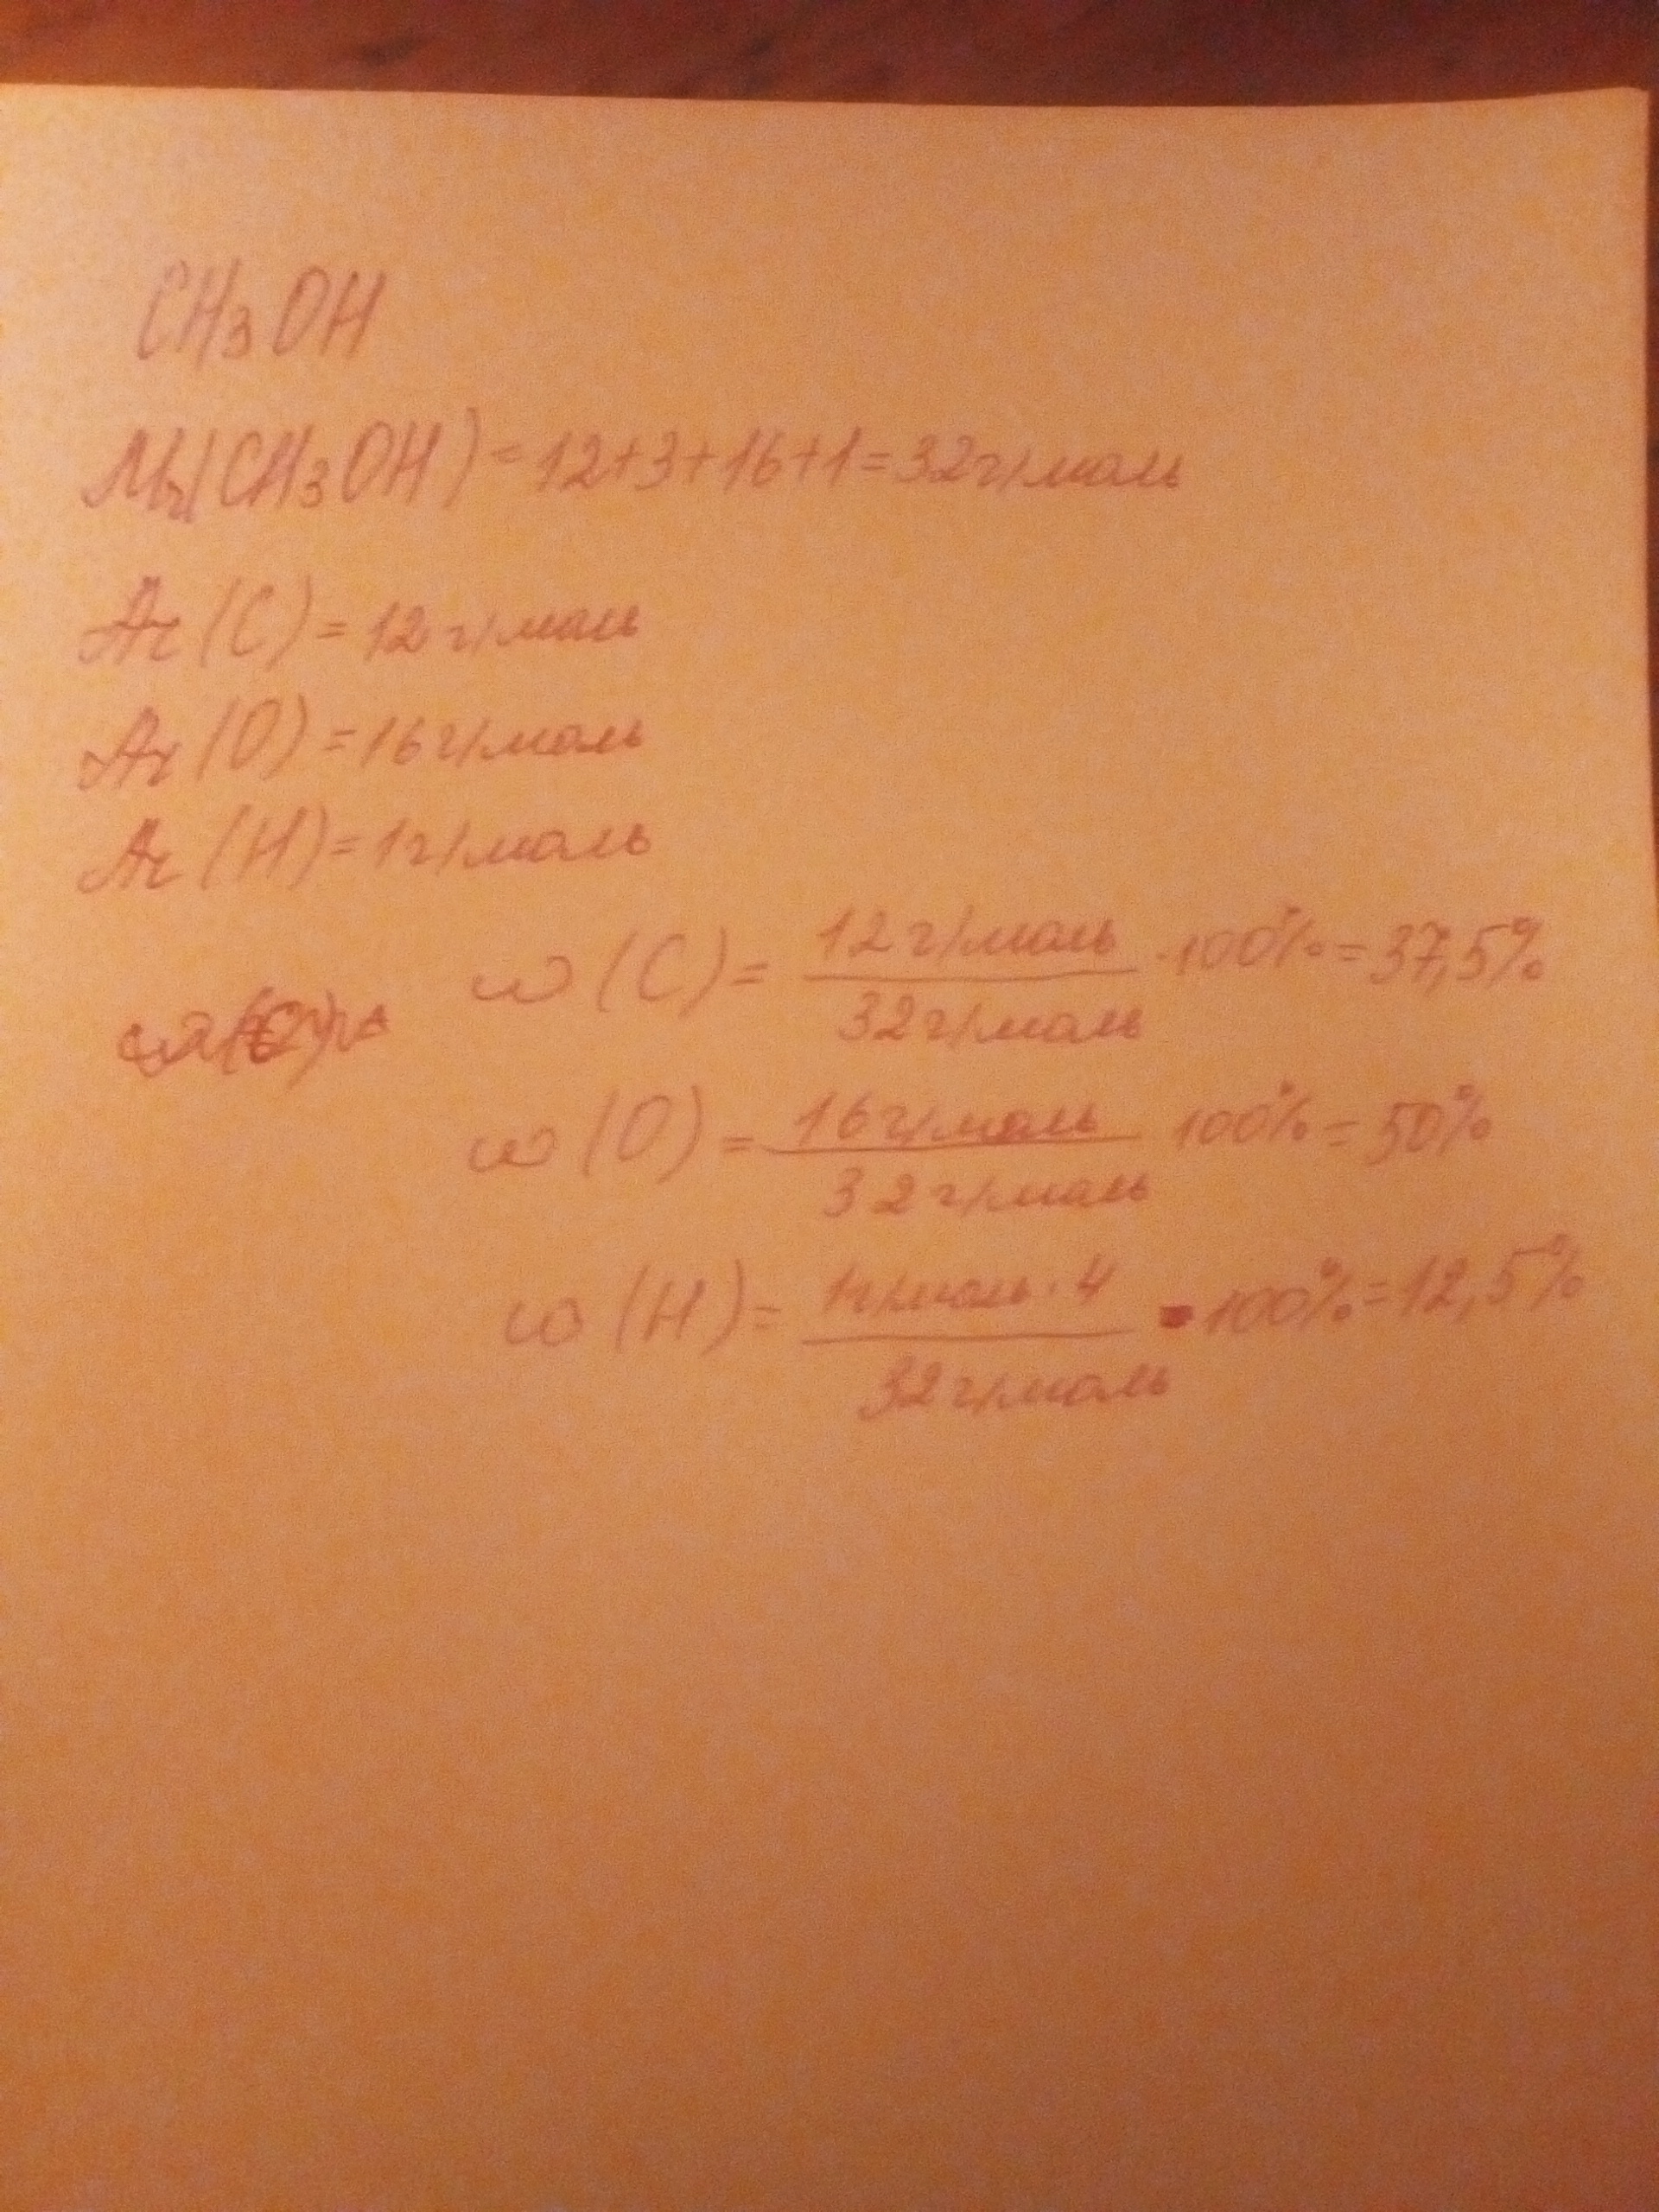 CH3OH
Mr(CH3OH) = 12+3+16+1=32г/моль
Ar (C) = 12 г/моль
Ar (O) = 16г/моль
Ar (H) = 1г/моль
w (C) = 12 г/моль / 32г/моль · 100% = 37,5%
w (O) = 16г/моль / 32 г/моль 100% = 50%
w (H) = 1г/моль · 4 / 32г/моль · 100% = 12,5%